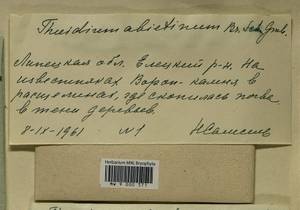 Thuidium abietinum Br., Sch., Gmb.
Липецкая обл. Елецкий р-н. На
известняках Ворон-камня в
расщелинах, где скопилась почва
в тени деревьев.
8-IX-1961 N1
Herbarium MW, Bryophyta